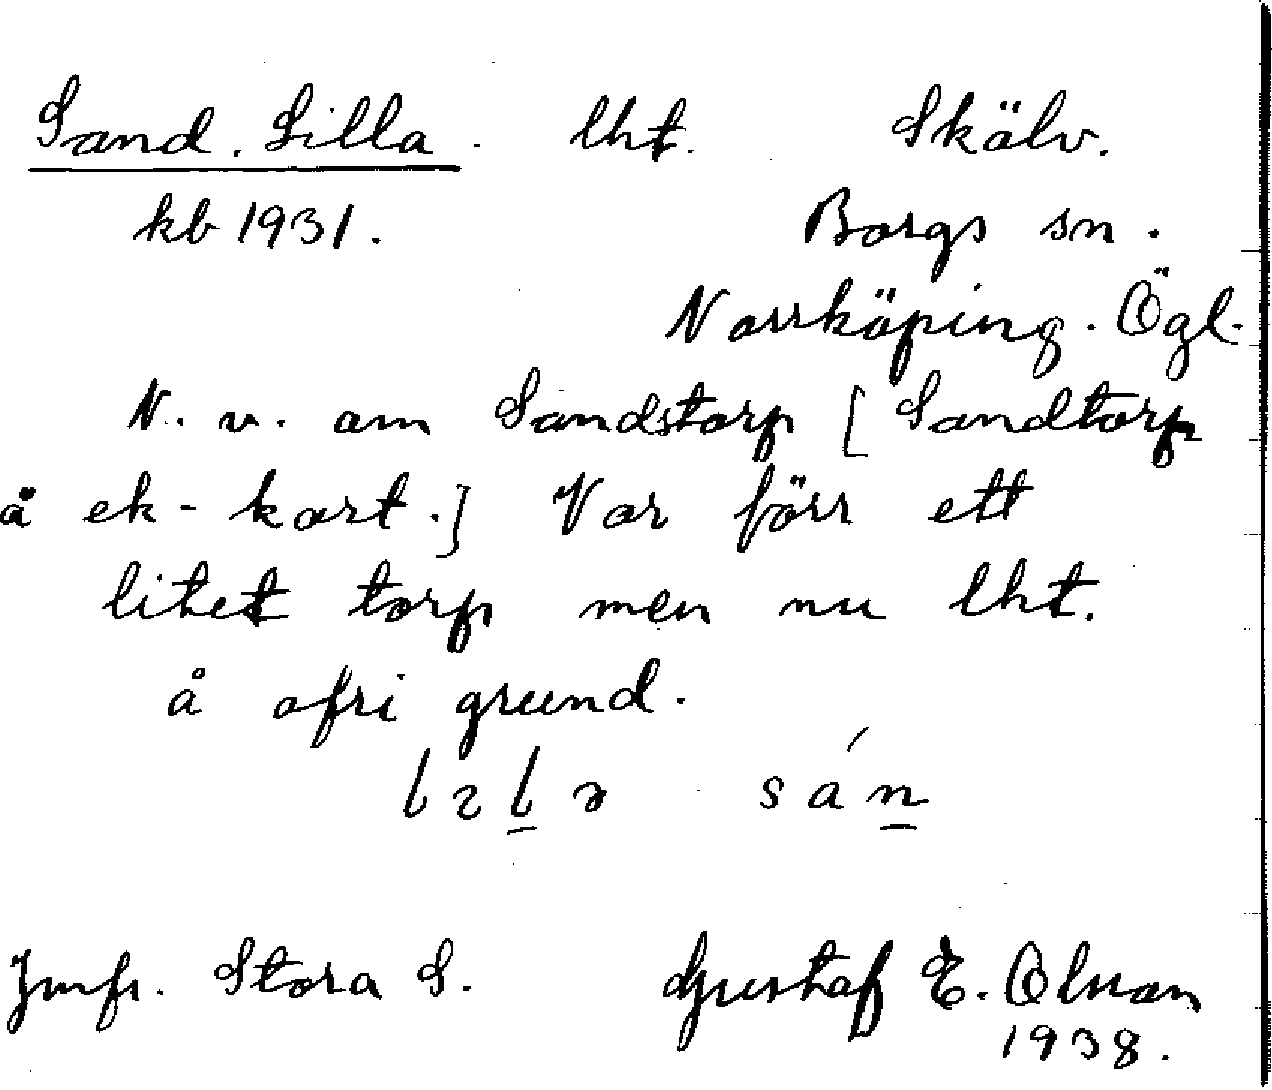 Sand. Lilla. lht. Skälv.
kb 1931. Borgs sn.
Norrköping. Ögl.
N. v. om Sandstorp [Sandtorp
å ek-kart.] Var förr ett
litet torp men nu lht.
å ofri grund.
lɩlə sán
Jmfr. Stora S. Gustaf E. Olsson
1938.